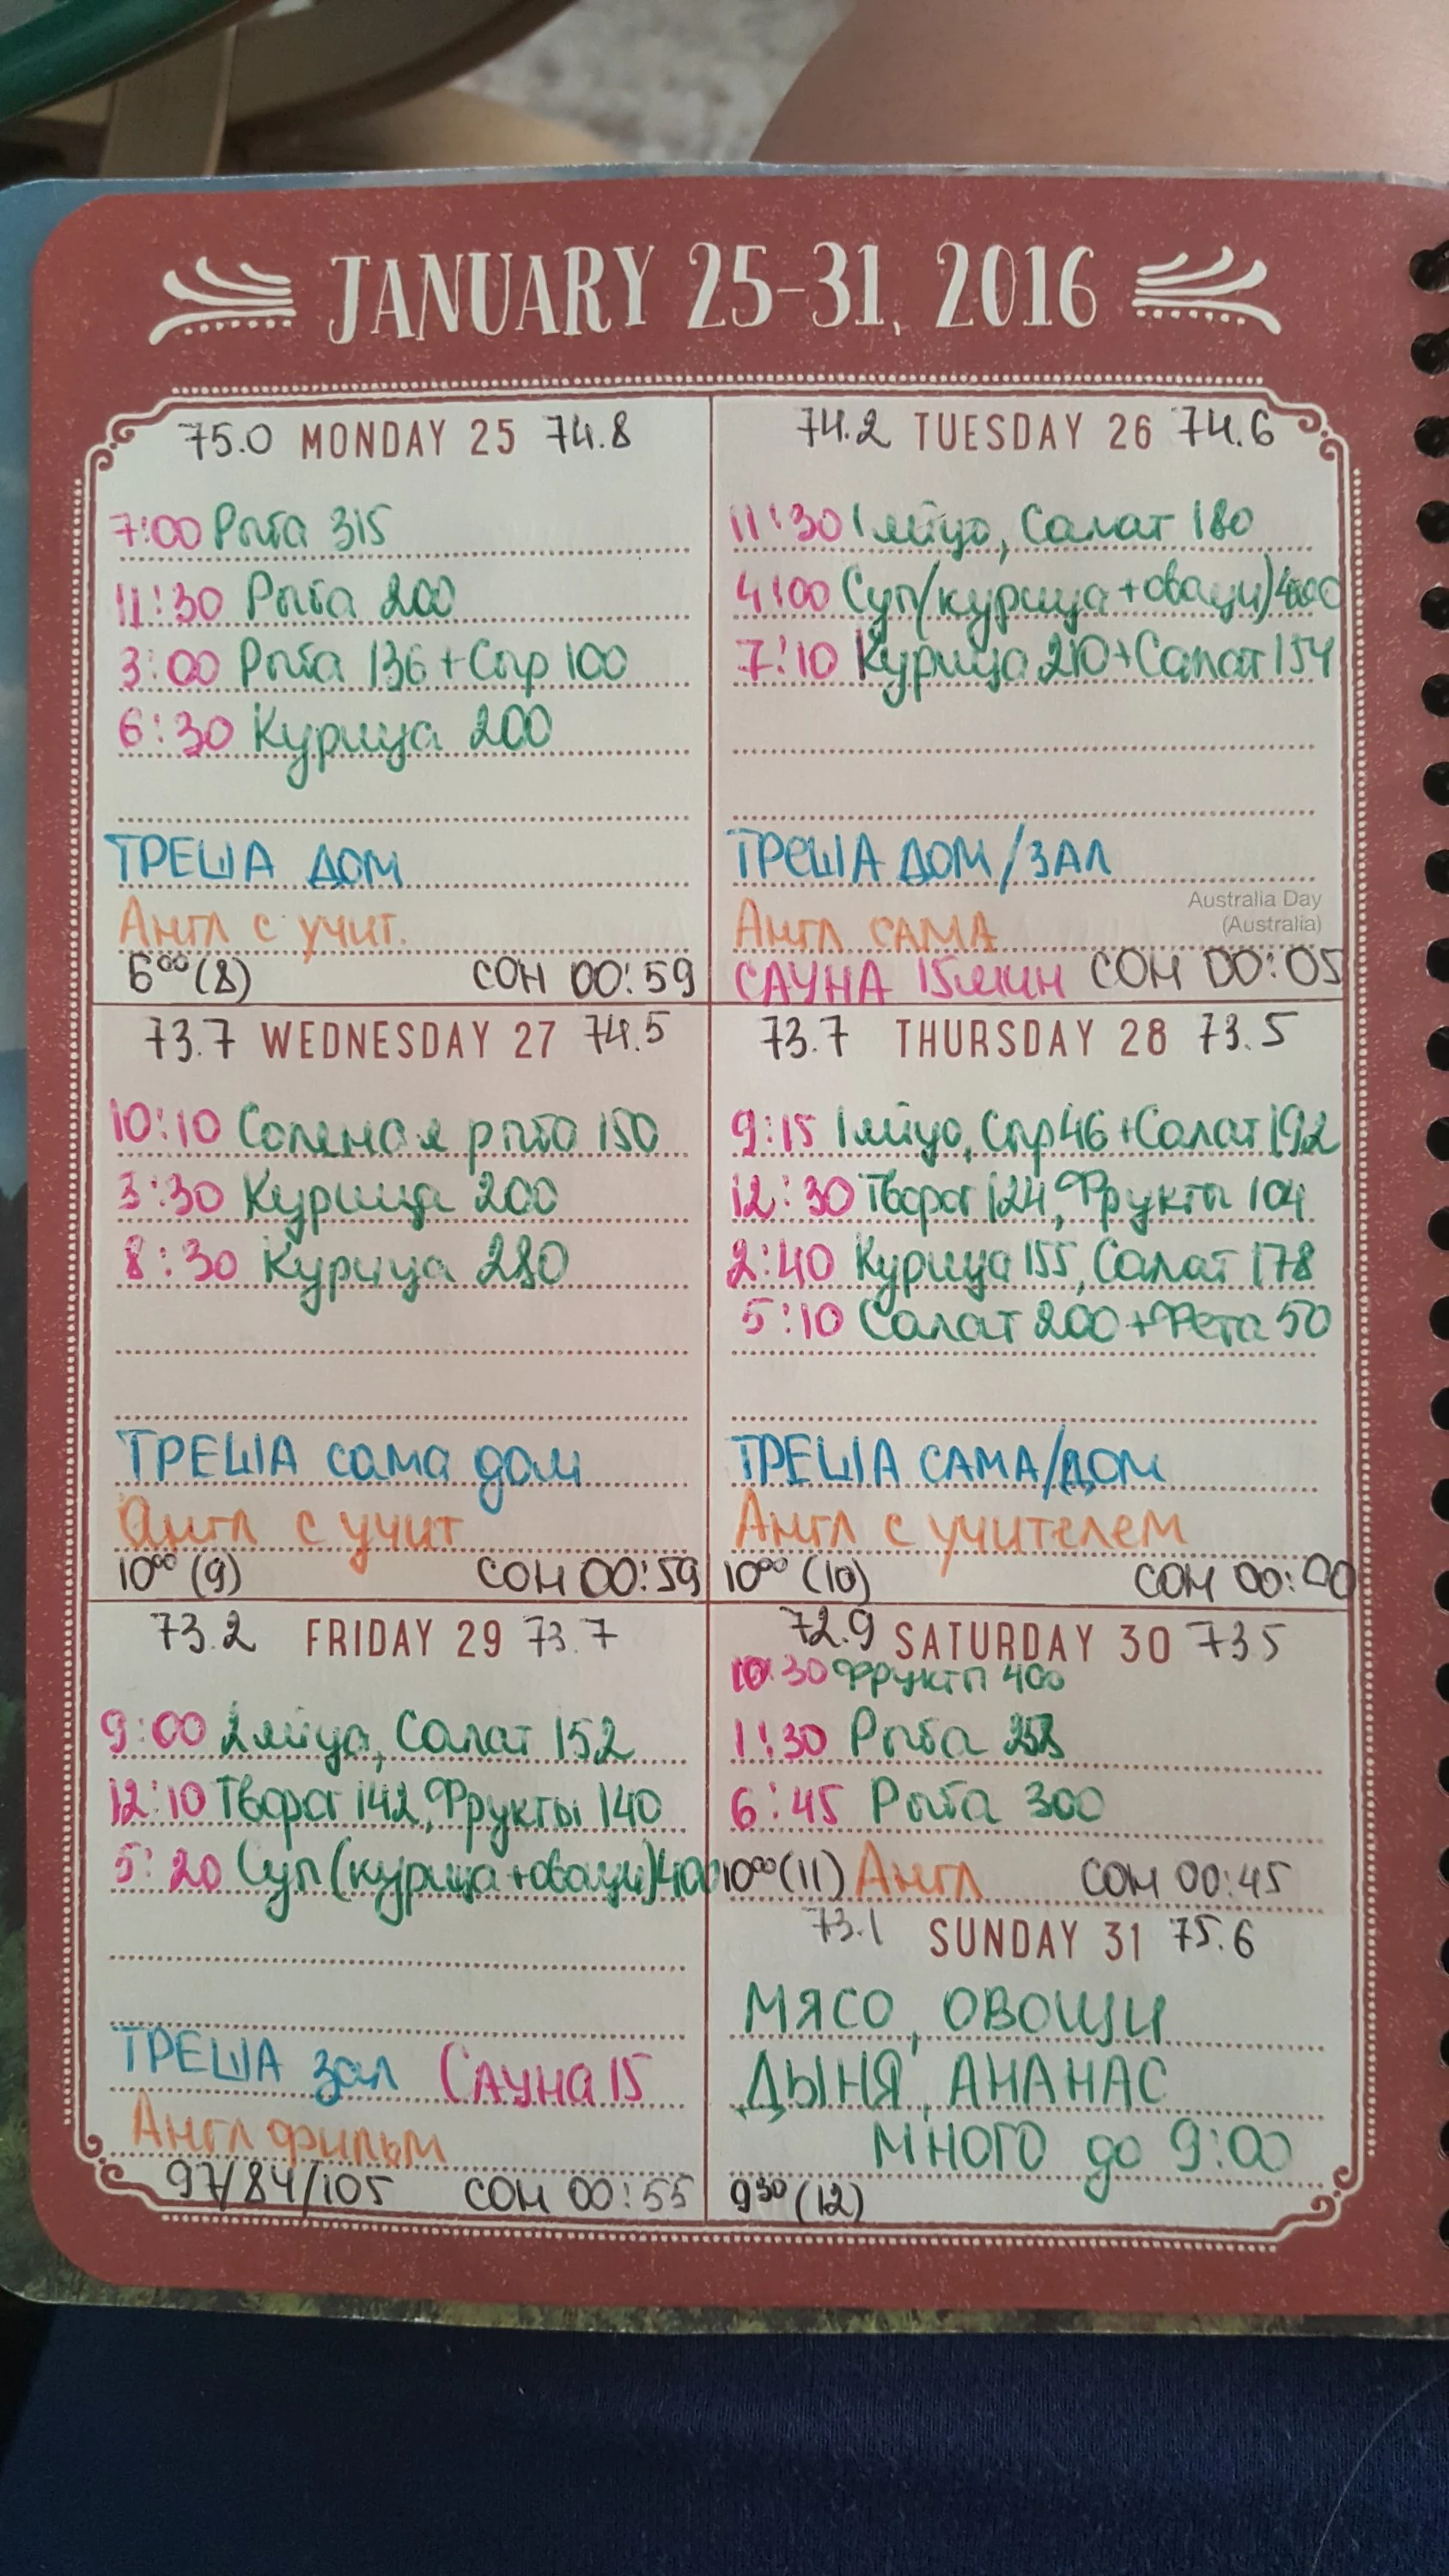 JANUARY 25-31, 2016
75.0 MONDAY 25 74.8
7:00 Рыба 315
11:30 Рыба 200
3:00 Рыба 136 + Сыр 100
6:30 Курица 200
ТРЕША ДОМ
Англ с учит.
6⁰⁰ (8) СОН 00:59
74.2 TUESDAY 26 74.6
11:30 1 яйцо, Салат 180
4:00 Суп (курица + овощи) 400
7:10 Курица 210 + Салат 154
ТРЕША ДОМ/ЗАЛ
Australia Day
(Australia)
Англ САМА
САУНА 15мин СОН 00:05
73.7 WEDNESDAY 27 74.5
10:10 Соленая рыба 150
3:30 Курица 200
8:30 Курица 280
ТРЕША сама дом
Англ с учит
10⁰⁰ (9) СОН 00:59
73.7 THURSDAY 28 73.5
9:15 1 яйцо, Сыр 46 + Салат 192
12:30 Творог 124, Фрукты 104
2:40 Курица 155, Салат 178
5:10 Салат 200 + Фета 50
ТРЕША САМА/ДОМ
Англ с учителем
10⁰⁰ (10) СОН
73.2 FRIDAY 29 73.7
9:00 2 яйца, Салат 152
12:10 Творог 142, Фрукты 140
5:20 Суп (курица + овощи) 400
ТРЕША зал САУНА 15
Англ фильм
97/84/105 СОН 00:55
72.9 SATURDAY 30 73.5
10:30 Фрукты 400
1:30 Рыба
6:45 Рыба 300
10⁰⁰ (11) Англ СОН 00:45
73.1 SUNDAY 31 75.6
МЯСО, ОВОЩИ
ДЫНЯ, АНАНАС
МНОГО до 9:00
9³⁰ (12)